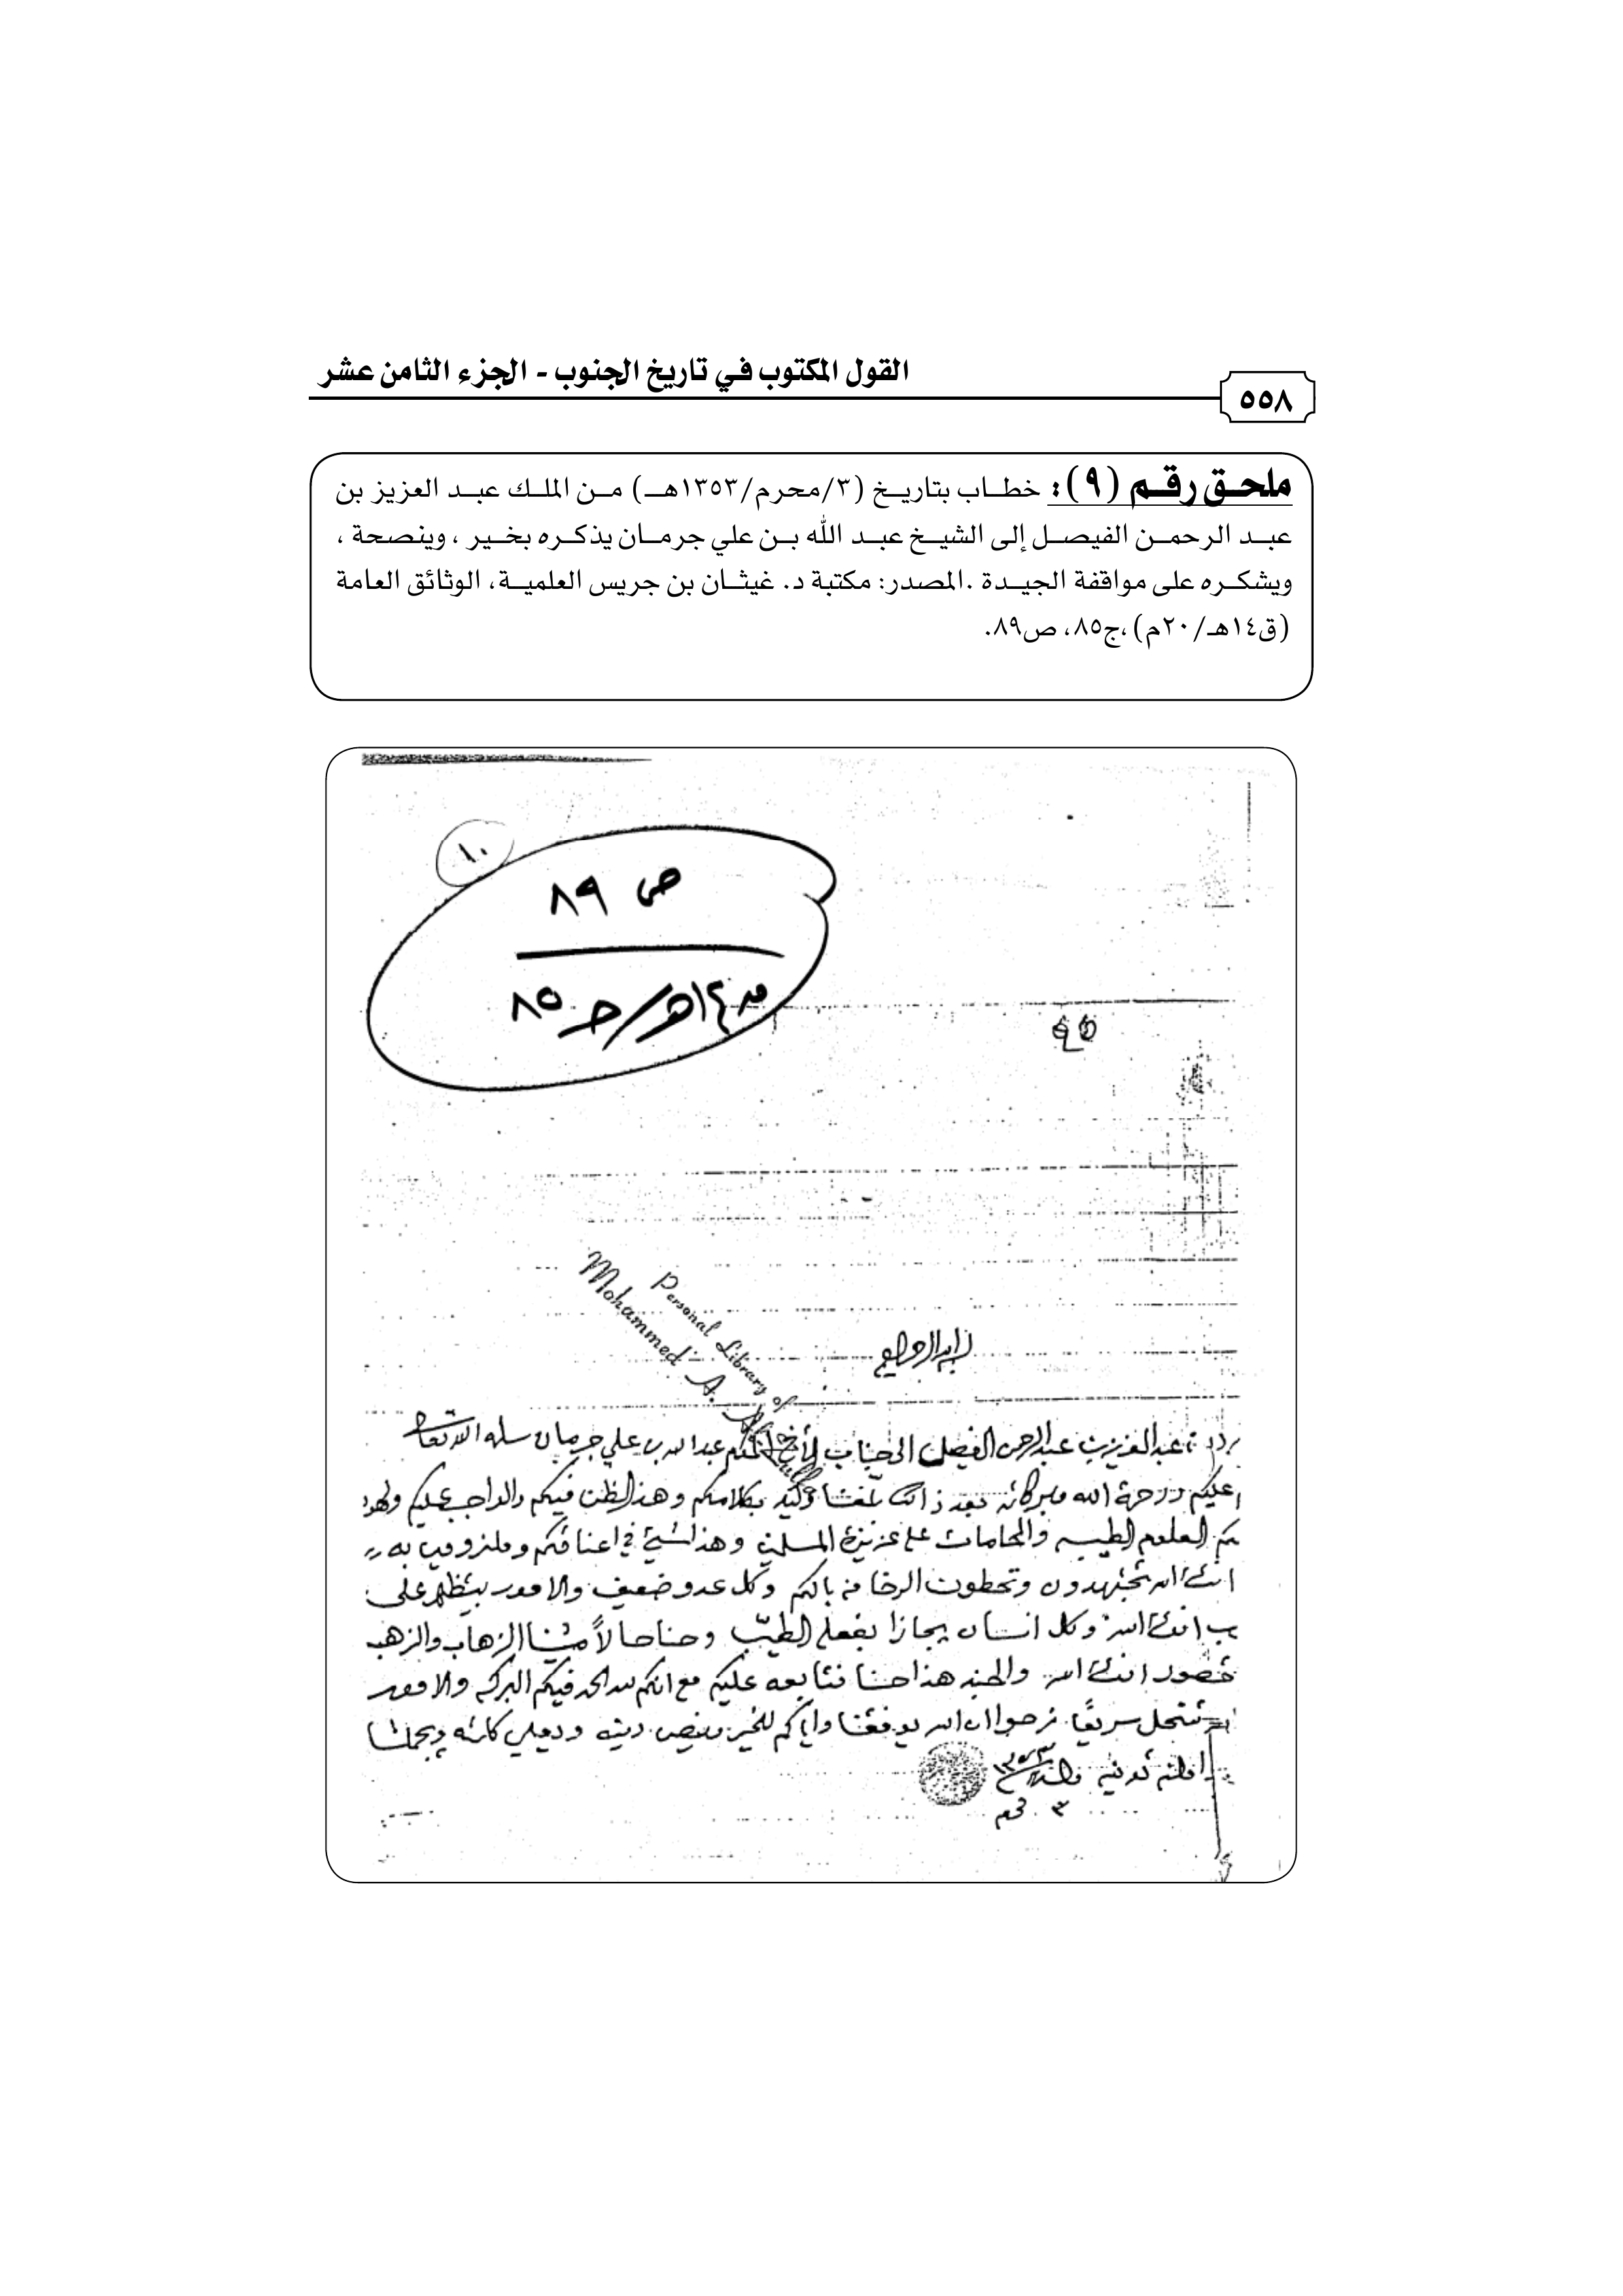 القول المكتوب في تاريخ الجنوب - الجزء الثامن عشر
٥٥٨
ملحق رقم (٩): خطاب بتاريخ (٣/محرم/١٣٥٣هـ) من الملك عبد العزيز بن
عبد الرحمن الفيصل إلى الشيخ عبد الله بن علي جرمان يذكره بخير ، وينصحة ،
ويشكره على مواقفة الجيدة .المصدر: مكتبة د. غيثان بن جريس العلمية، الوثائق العامة
(ق١٤هـ/٢٠م)،ج٨٥، ص٨٩.
١٠
ص ٨٩
١٤هـ/جـ ٨٥
Personal Library of
Mohammed A.
عبدالعزيز بن عبدالرحمن الفيصل الى جناب الأخ المكرم عبدالله بن علي جرمان سلمه الله تعالى
عليكم ورحمة الله وبركاته بعد ذالك بلغنا بكلامكم وهذا الظن فيكم والواجب عليكم
العلوم الطيبه والمحامات على المسلمين وهذا الشيء في اعناقكم وملزومين به
انشاء الله تجتهدون وتحطون الرخا من بالكم وكل عدو ضعيف والامور على
انشاء الله وكل انسان يجازا بفعله الطيب وحناحالاً الزهاب والزهب
انشاء الله والجند هذا حنا عليكم مع انكم لله الحمد فيكم البركه والامور
سريعًا نرجوا ان الله يوفقنا واياكم للخير وينصر دينه ويعلي كلمته ويجعلنا
١٣٥٣
٣ محرم